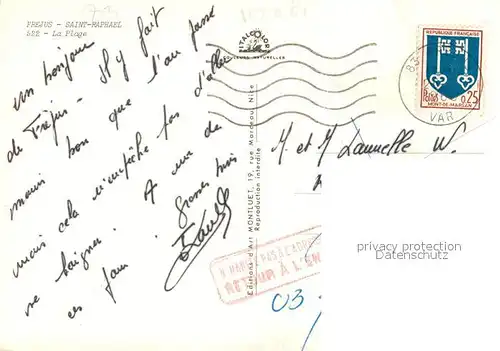 FREJUS - SAINT-RAPHAEL
622 - La Plage
un bonjour
de Fréjus. Il y fait
moins bon que l'an passé
mais cela n'empêche pas d'aller
se baigner. A un de
ces jours. Grosses bises
ITALCOLOR
COULEURS NATURELLES
Editions d'Art MONTLUET, 19, rue Mardeau, Nice
Reproduction interdite
REPUBLIQUE FRANÇAISE
Postes
0,25
MONT-DE-MARSAN
83
VAR
M. et M. Lannelle W.
N'HABITE PAS A L'ADRE
RETOUR À L'EN
03
privacy protection
Datenschutz